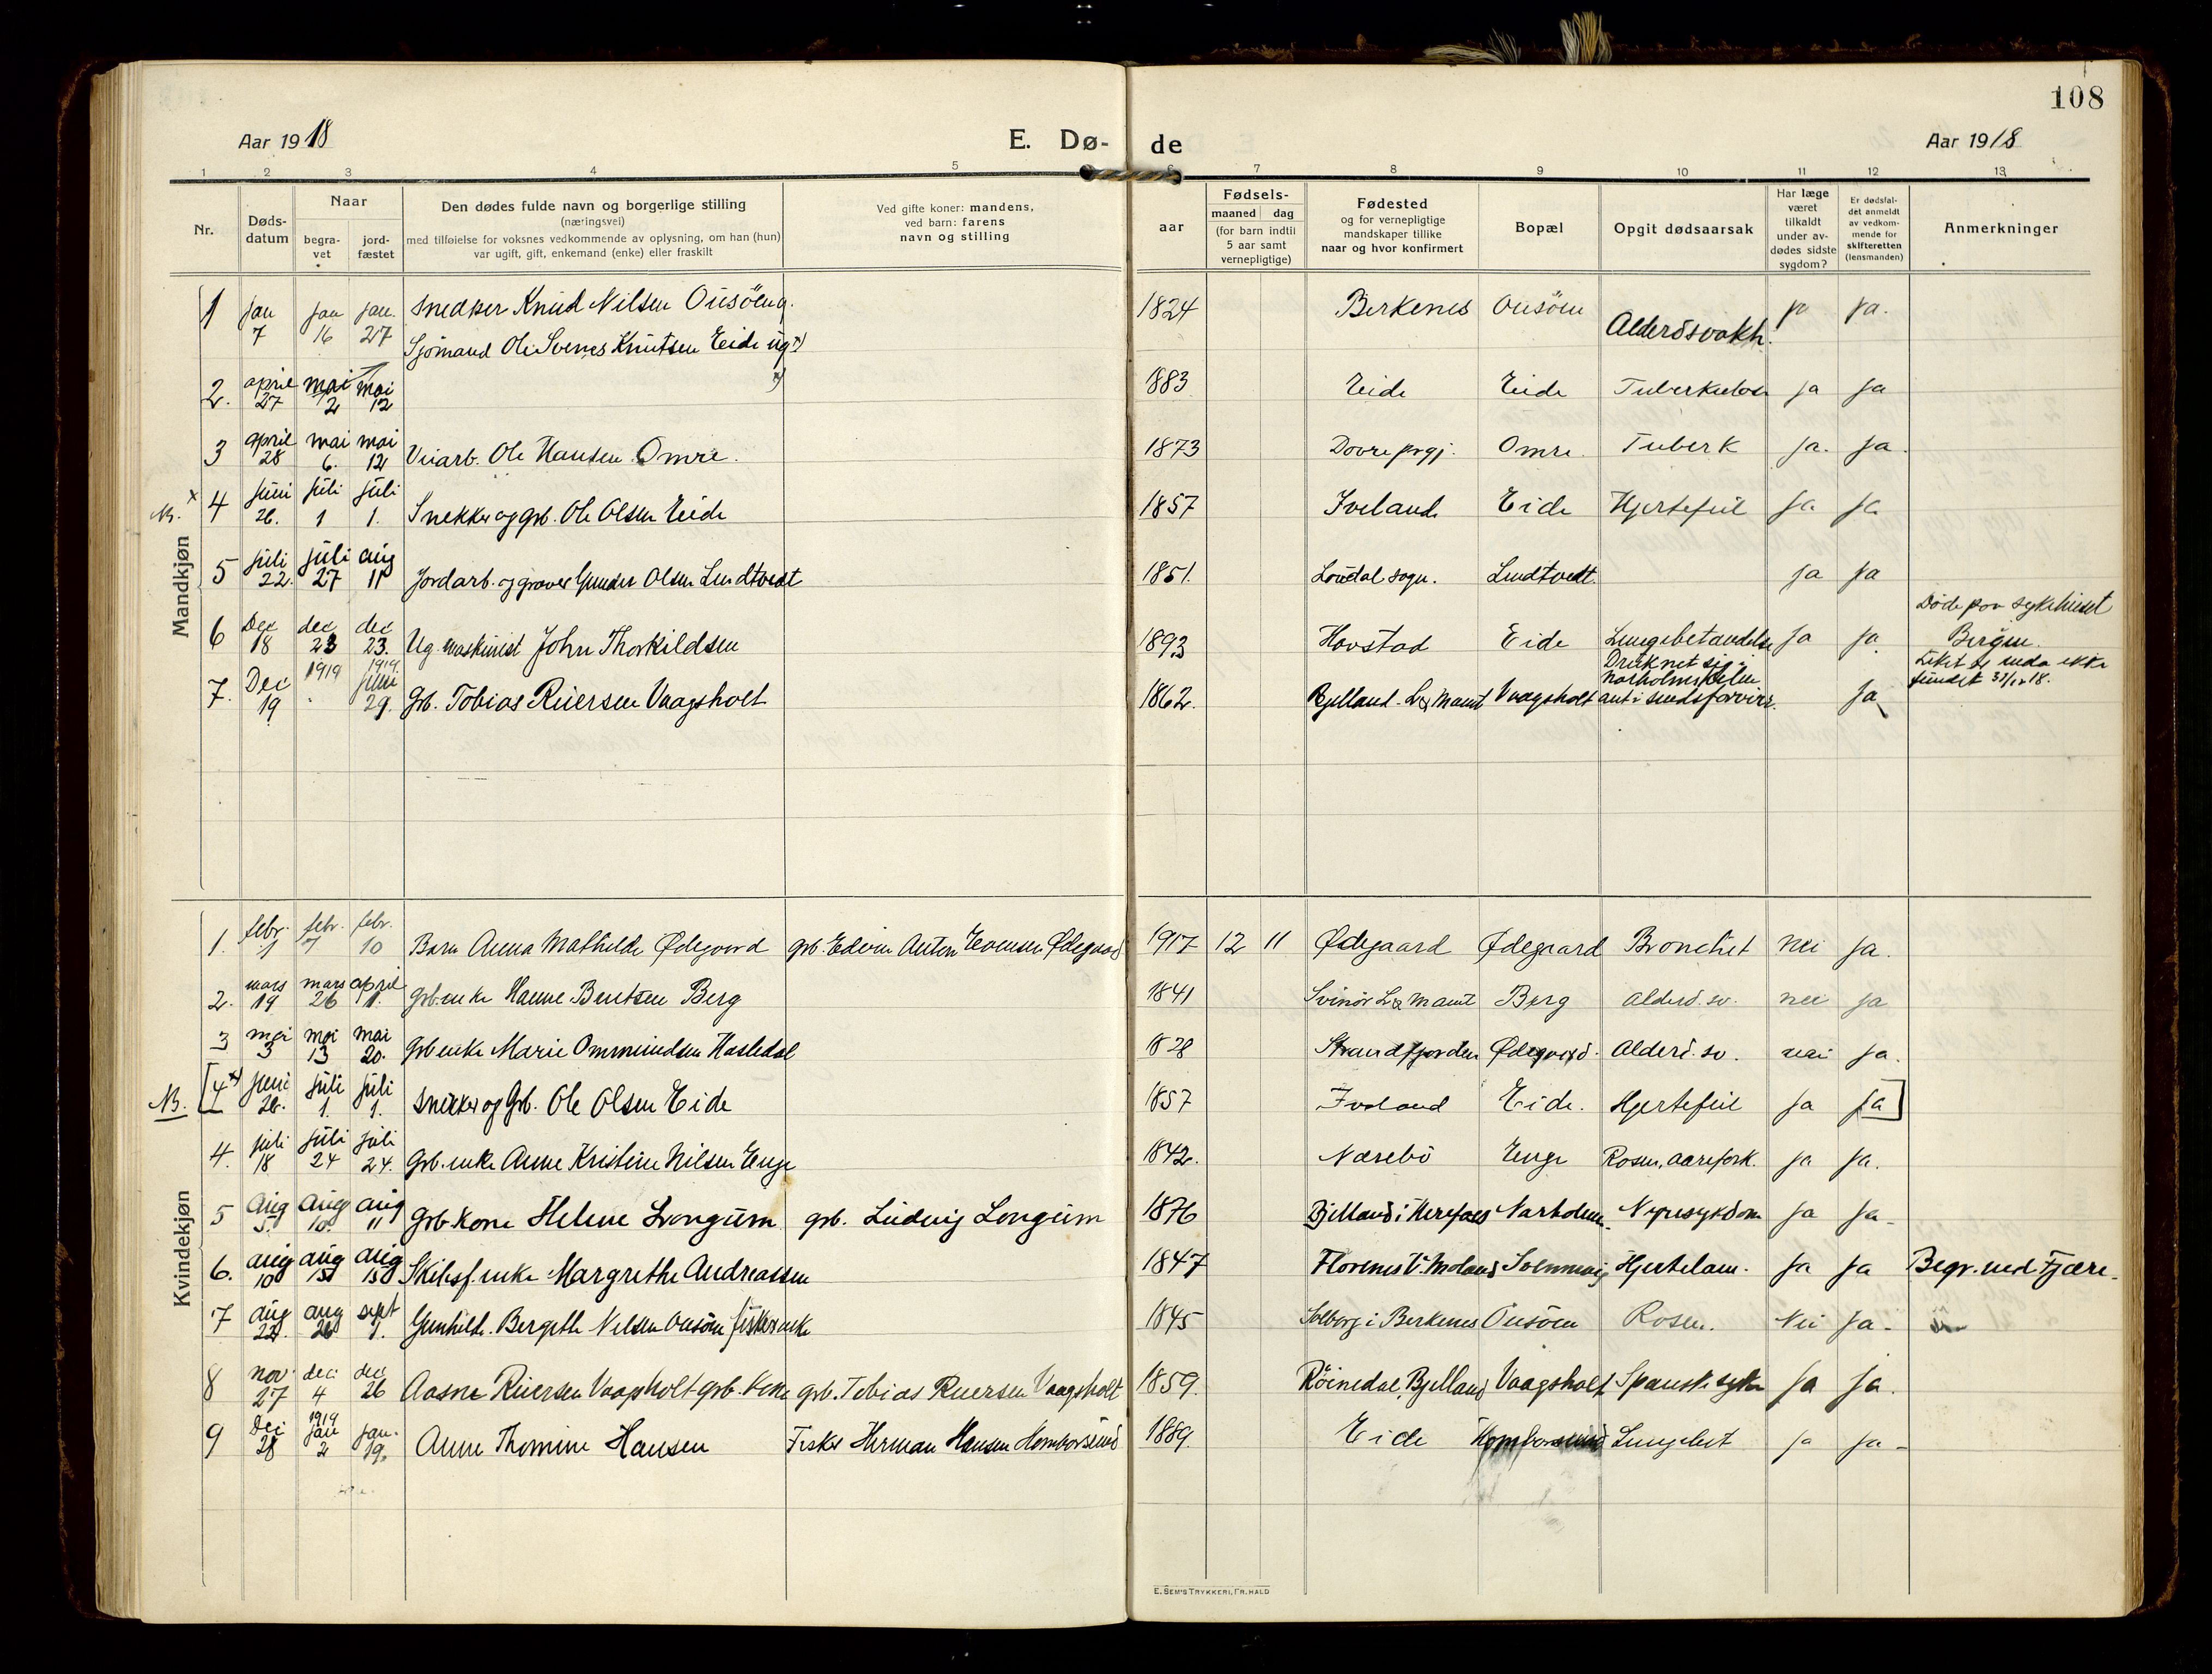 108
Aar 1918 E. Dø- de Aar 1918
1 2 3 4 5 6 7 8 9 10 11 12 13
Nr. Døds-datum Naar begra-vet jord-fæstet Den dødes fulde navn og borgerlige stilling (næringsvei) med tilføielse for voksnes vedkommende av oplysning, om han (hun) var ugift, gift, enkemand (enke) eller fraskilt Ved gifte koner: mandens, ved barn: farens navn og stilling aar Fødsels- maaned dag (for barn indtil 5 aar samt vernepligtige) Fødested og for vernepligtige mandskaper tillike naar og hvor konfirmert Bopæl Opgit dødsaarsak Har læge været tilkaldt under av-dødes sidste sygdom? Er dødsfal-det anmeldt av vedkom-mende for skifteretten (lensmanden) Anmerkninger
Mandkjøn
1 jan 7 jan 16 jan. 27 Snedker Knud Nilsen Ousöen g. 1824 Berkenes Ousöen Alderdsvakh. ja ja.
Sjömand Ole Svenes Knutsen Eide ug x)
2. april 27 mai 2 mai 12 x) 1883 Eide Eide Tuberkulose ja ja
3 april 28 mai 6. mai 12 Veiarb. Ole Hansen Omre. 1873 Dovre prgj. Omre. Tuberk ja. ja.
NB. x 4 juni 26. juli 1 juli 1. Snekker og grb. Ole Olsen Eide 1857 Iveland Eide Hjertefeil ja ja
5 juli 22. juli 27 aug 11 Jordarb. og graver Gunder Olsen Lundtvedt 1851. Loudal sogn. Lundtvedt. ja ja
6 Dec 18 dec 23 dec 23. Ug. maskinist John Thorkildsen 1893 Hovstad Eide Lungebetændelse ja ja. Döde paa sykehuset Bergen.
7. Dec 19 1919 1919. juni 29. Grb. Tobias Reiersen Vaagsholt 1862. Bjelland. L. & M amt Vaagsholt Druknet sig i Narholmskilen ant. i sindsforvirr. ja Liket er enda ikke fundet 31/12 18.
Kvindekjøn
1. febr. 1 febr. 7 febr. 10 Barn Anna Mathilde Ødegaard grb. Edvin Anton Evensen Ødegaard 1917 12 11 Ødegaard Ødegaard Bronchit nei ja.
2. mars 19 mars 26 april 1. Grb.enke Hanne Bentsen Berg 1841 Svinör L & M amt Berg Alderd. sv. nei ja
3 mai 3 mai 13 mai 20. Grb enke Marie Ommundsen Hasledal 1828 Strandfjorden Ødegaard. Alderd. sv. nei ja.
NB. [4 x) juni 26. juli 1. juli 1. Snekker og Grb. Ole Olsen Eide 1857 Iveland Eide. Hjertefeil ja ja]
4. juli 18 juli 24 juli 24. Grb. enke Anne Kristine Nilsen Enge 1842. Nærebö Enge Rosen, aarefork. ja ja.
5 aug 5. aug 10. aug 11 Grb. kone Helene Longum grb. Ludvig Longum 1876 Bjelland i Herefoss Narholmen. Nyresykdom ja ja.
6. aug 10 aug 15 aug 15 Skibsf. enke Margrethe Andreassen 1847 Florenes V. Moland Hjertelam. ja ja Begr. ved Fjære.
7 aug 22. aug 26 sept 1. Gunhild. Bergethe Nilsen Ousöen fiskerenke 1845 Solborg i Berkenes Ousöen Rosen. Nei ja.
8 nov. 27 dec. 4 dec 26 Aasne Reiersen Vaagsholt grb. kone grb. Tobias Reiersen Vaagsholt 1859. Röinedal, Bjelland Vaagsholt Spanske syken ja ja.
9 Dec 28 1919 jan 2 jan. 19. Anne Thomine Hansen Fisker Herman Hansen Homborsund 1889. Eide Homborsund Lungebet ja ja.
E. SEM'S TRYKKERI, FR. HALD